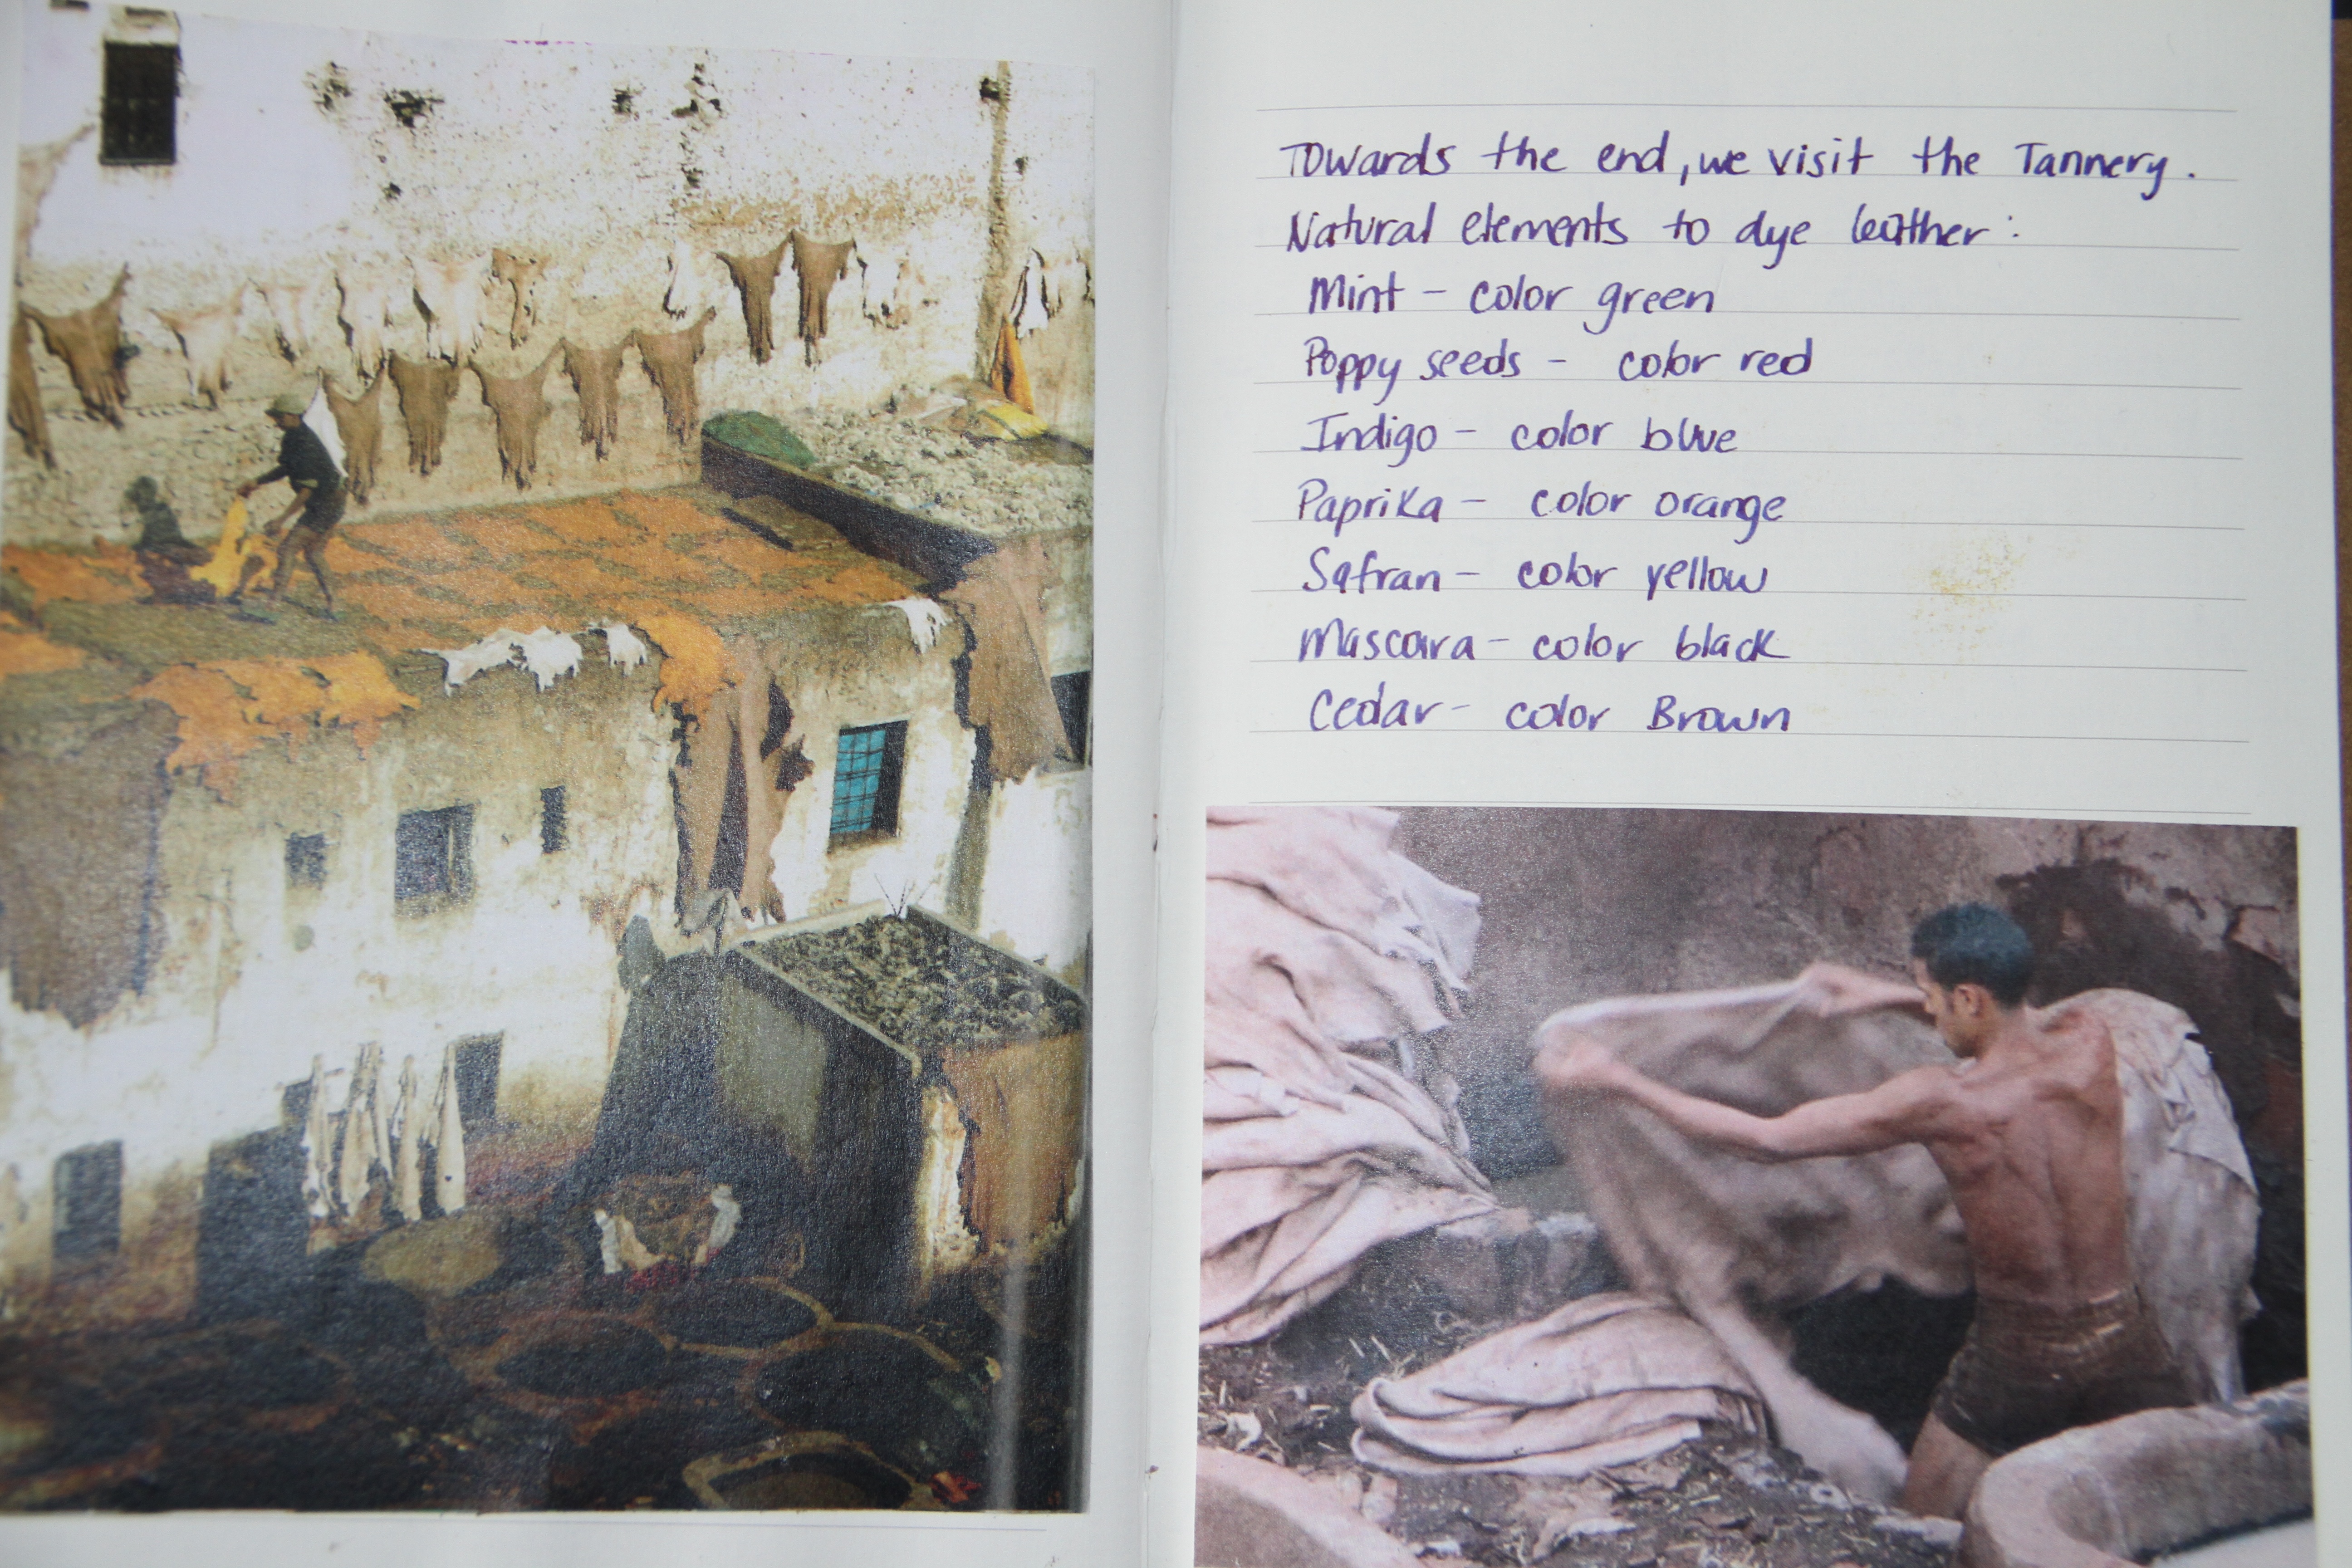 Towards the end, we visit the Tannery.
Natural elements to dye leather:
Mint - color green
Poppy seeds - color red
Indigo - color blue
Paprika - color orange
Safran - color yellow
Mascara - color black
Cedar - color Brown